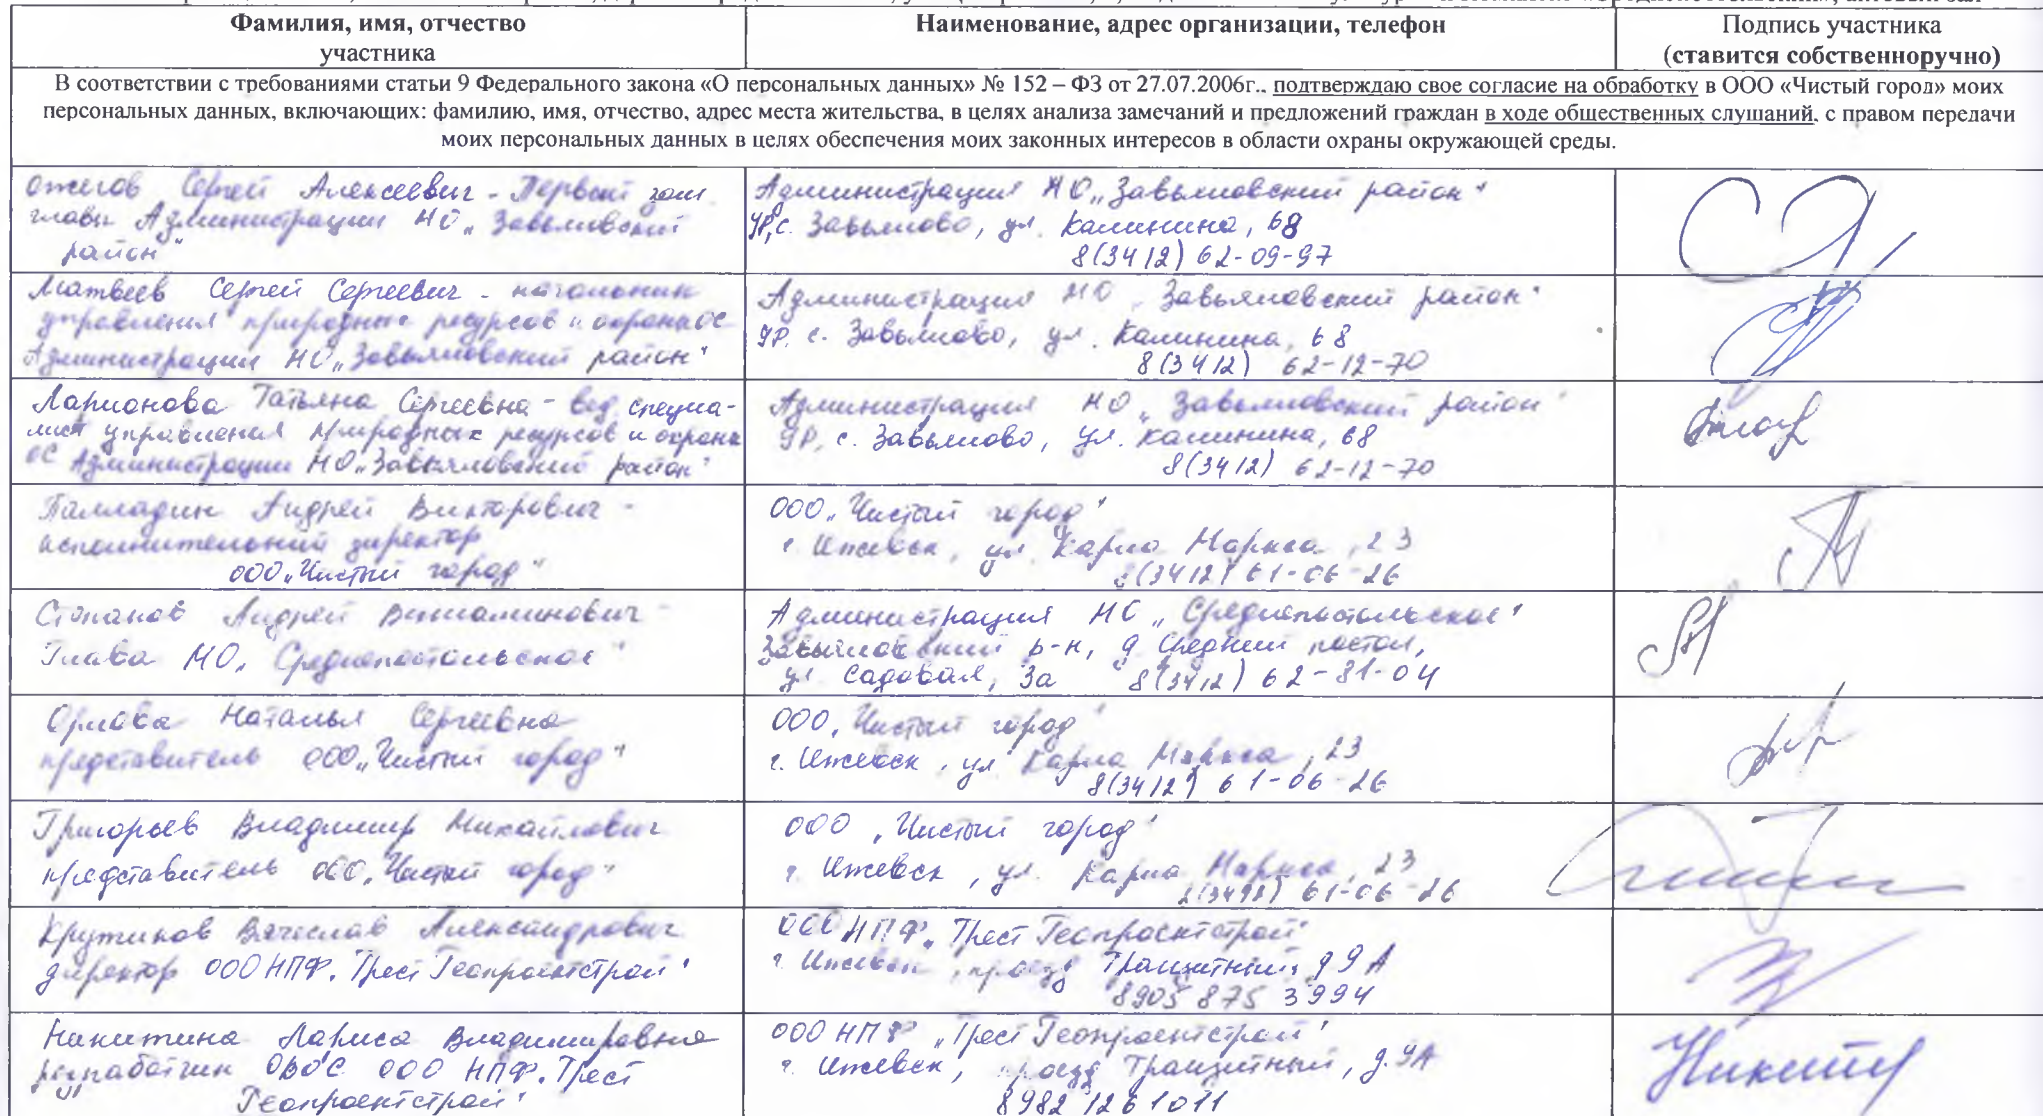 Фамилия, имя, отчество
участника
Наименование, адрес организации, телефон
Подпись участника
(ставится собственноручно)
В соответствии с требованиями статьи 9 Федерального закона «О персональных данных» № 152 – ФЗ от 27.07.2006г., подтверждаю свое согласие на обработку в ООО «Чистый город» моих
персональных данных, включающих: фамилию, имя, отчество, адрес места жительства, в целях анализа замечаний и предложений граждан в ходе общественных слушаний, с правом передачи
моих персональных данных в целях обеспечения моих законных интересов в области охраны окружающей среды.
Ожегов Сергей Алексеевич - Первый зам.
главы Администрации МО „Завьяловский
район"
Администрация МО „Завьяловский район"
УР, с. Завьялово, ул. Калинина, 68
8(3412) 62-09-97
Матвеев Сергей Сергеевич - начальник
управления природных ресурсов и охраны ОС
Администрации МО „Завьяловский район"
Администрация МО „Завьяловский район"
УР, с. Завьялово, ул. Калинина, 68
8(3412) 62-12-70
Ларионова Татьяна Сергеевна - вед. специа-
лист управления природных ресурсов и охраны
ОС Администрации МО „Завьяловский район"
Администрация МО „Завьяловский район"
УР, с. Завьялово, ул. Калинина, 68
8(3412) 62-12-70
Палладин Андрей Викторович -
исполнительный директор
ООО „Чистый город"
ООО „Чистый город"
г. Ижевск, ул. Карла Маркса, 23
8(3412) 61-06-26
Степанов Андрей Вениаминович -
Глава МО „Среднепостольское"
Администрация МО „Среднепостольское"
Завьяловский р-н, д. Средний постол,
ул. Садовая, 3а 8(3412) 62-81-04
Орлова Наталья Сергеевна
представитель ООО „Чистый город"
ООО „Чистый город"
г. Ижевск, ул. Карла Маркса, 23
8(3412) 61-06-26
Григорьев Владимир Михайлович
представитель ООО „Чистый город"
ООО „Чистый город"
г. Ижевск, ул. Карла Маркса, 23
61-06-26
Вячеслав Александрович
директор ООО НПФ „Трест Геопроектстрой"
ООО НПФ „Трест Геопроектстрой"
г. Ижевск, проезд Транзитный, д 9А
8905 875 3994
Никитина Лариса Владимировна
разработчик ОВОС ООО НПФ „Трест
Геопроектстрой"
ООО НПФ „Трест Геопроектстрой"
г. Ижевск, проезд Транзитный, д. 9А
8982 1261011
Никити